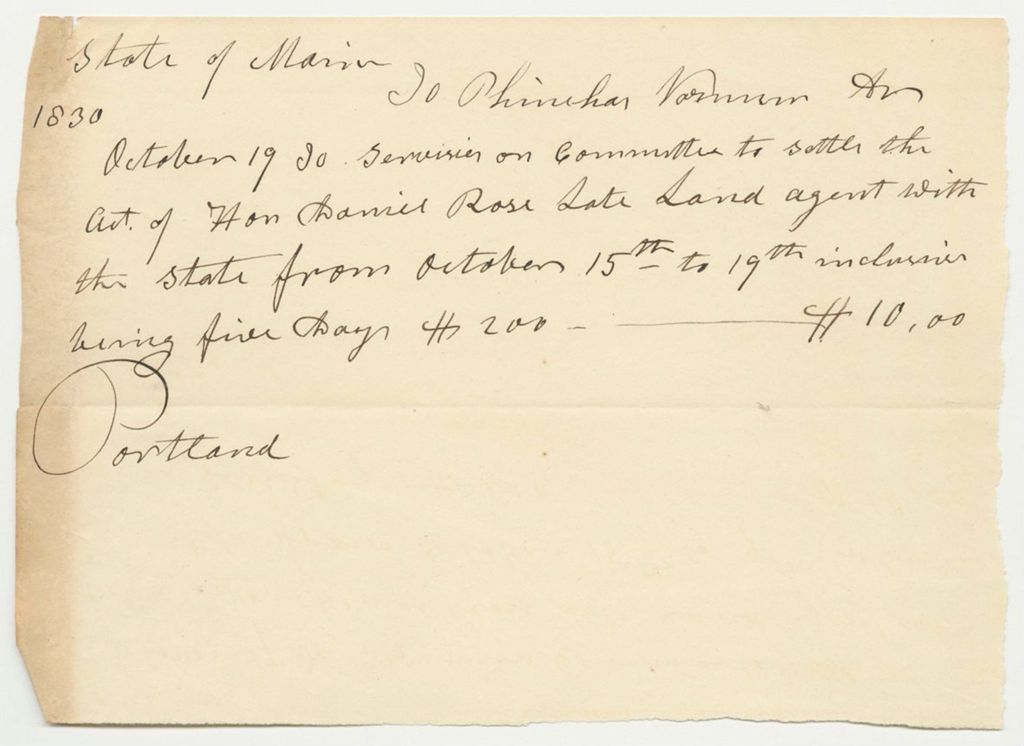 State of Maine
To Phinehas Varnum Dr
1830
October 19 To Servises on Committee to settle the
Act. of Hon Daniel Rose Late Land agent with
the State from October 15th to 19th inclusive
being five Days $ 200 - $ 10,00
Portland